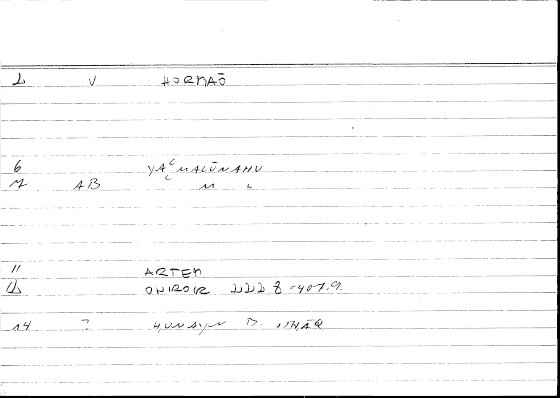 1 V HORMAÕ
6 YAʿMALŪNAHU
M AB M L
11 ARTEM
ONIROK III 8 -407.9.
14 ? HUNAYN B. ISHĀQ